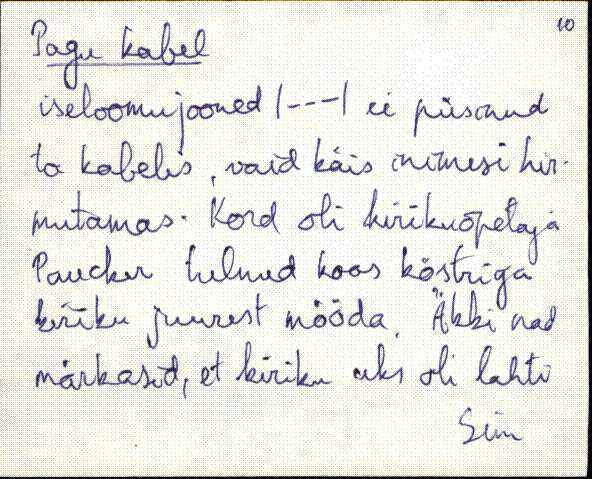 10
Pagu kabel
iseloomujooned /---/ ei püsinud
ta kabelis, vaid käis inimesi hir-
mutamas. Kord oli kirikuõpetaja
Paucker tulnud koos köstriga
kiriku juurest mööda. Äkki nad
märkasid, et kiriku uks oli lahti
Siin